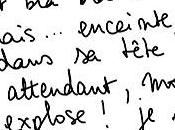 mais... enceinte,
dans sa tête,
attendant,
explose ! je